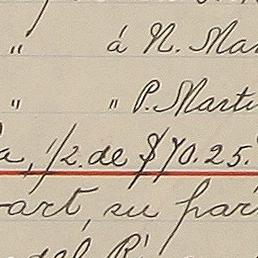 " á N. Mar
" " P. Marti
a, 1/2 de $70.25.
art, su par
del R